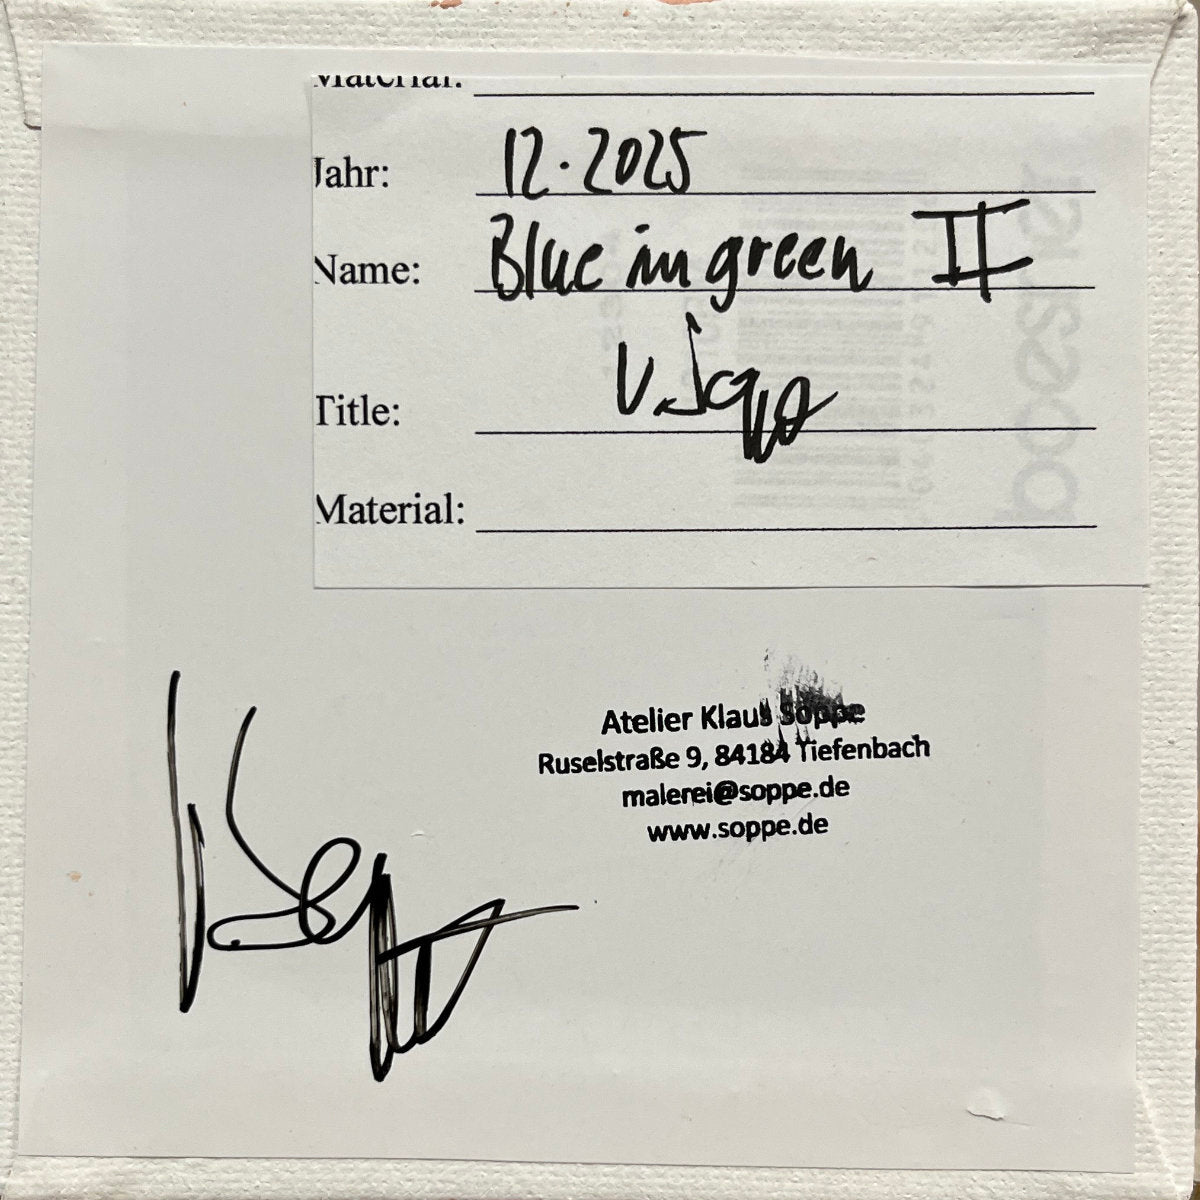 Material:
Jahr: 12.2025
Name: Blue in green II
Title: V. Soppe
Material:
Atelier Klaus Soppe
Ruselstraße 9, 84184 Tiefenbach
malerei@soppe.de
www.soppe.de
boesner